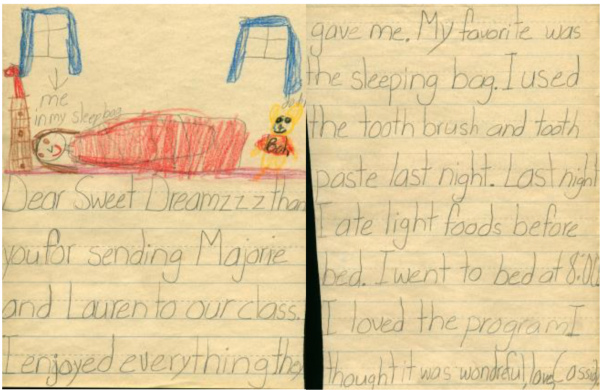 me
in my sleep bag
Dear Sweet Dreamzzz than
you for sending Majorie
and Lauren to our class.
I enjoyed everything they
gave me. My favorite was
the sleeping bag. I used
the tooth brush and tooth
paste last night. Last night
I ate light foods before
bed. I went to bed at 8:00
I loved the program I
thought it was wondreful, love, Cassidy